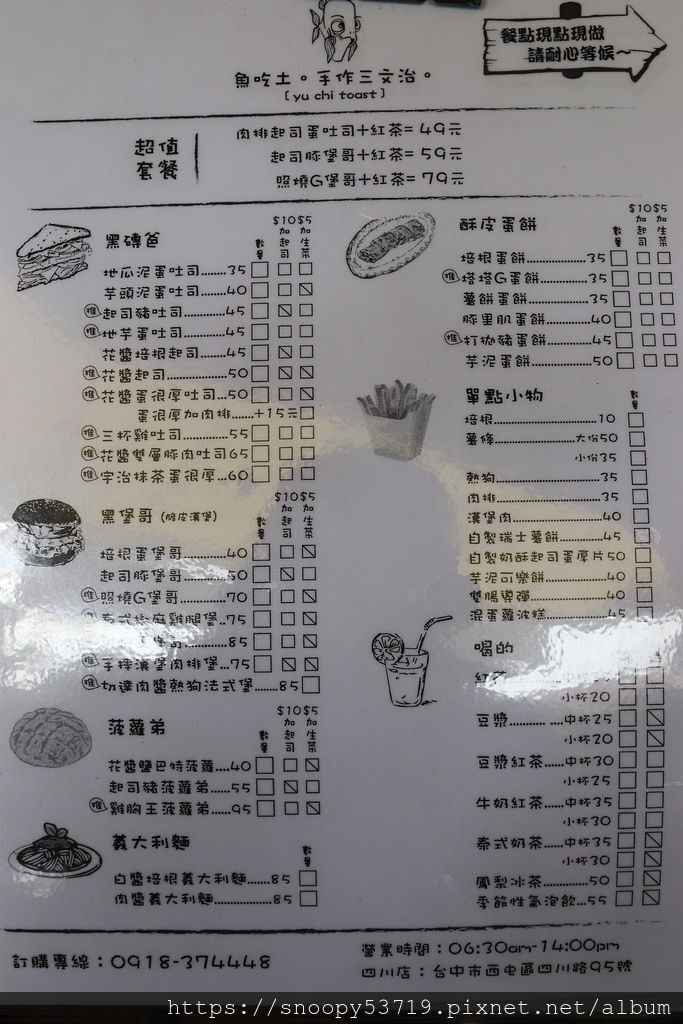 餐點現點現做
請耐心等候~
魚吃土。手作三文治。
(yu chi toast)
超值
套餐
肉排起司蛋吐司+紅茶=49元
起司豚堡哥+紅茶=59元
照燒G堡哥+紅茶=79元
黑磚爸 數量 $10加起司 $5加生菜
地瓜泥蛋吐司.......35
芋頭泥蛋吐司.......40
推 起司豬吐司.......45
推 地芋蛋吐司.......45
花醬培根起司.......45
推 花醬起司.......50
推 花醬蛋很厚吐司...50
蛋很厚加肉排......+15元
推 三杯雞吐司.......55
推 花醬雙層豚肉吐司65
推 宇治抹茶蛋很厚...60
黑堡哥 (脆皮漢堡) 數量 $10加起司 $5加生菜
培根蛋堡哥.........40
起司豚堡哥.........50
推 照燒G堡哥.........70
推 泰式椒麻雞腿堡...75
堡哥.......85
推 手捧漢堡肉排堡...75
推 切達肉醬熱狗法式堡.......85
菠蘿弟 數量 $10加起司 $5加生菜
花醬鹽巴特菠蘿....40
起司豬菠蘿弟......55
推 雞胸王菠蘿弟......95
義大利麵 數量
白醬培根義大利麵.......85
肉醬義大利麵..............85
酥皮蛋餅 數量 $10加起司 $5加生菜
培根蛋餅............35
推 塔塔G蛋餅..........35
薯餅蛋餅............35
豚里肌蛋餅.........40
推 打拋豬蛋餅........45
芋泥蛋餅............50
單點小物 數量
培根......................10
薯條................大份50
小份35
熱狗......................35
肉排......................35
漢堡肉..................40
自製瑞士薯餅........45
自製奶酥起司蛋厚片50
芋泥可樂餅...........40
雙腸導彈..............40
混蛋蘿蔔糕..........45
喝的
紅茶
小杯20
豆漿............中杯25
小杯20
豆漿紅茶.....中杯30
小杯25
牛奶紅茶.....中杯35
小杯30
泰式奶茶.....中杯35
小杯30
鳳梨冰茶..........50
季節性氣泡飲...55
訂購專線：0918-374448
營業時間：06:30am-14:00pm
四川店：台中市西屯區四川路95號
https://snoopy53719.pixnet.net/album